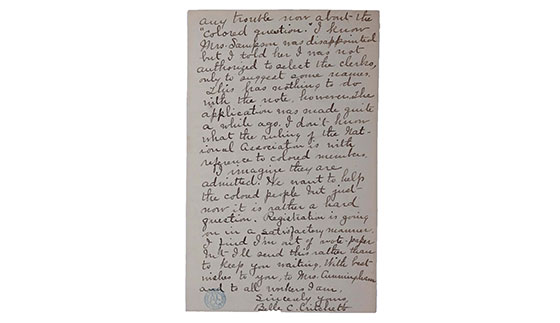 any trouble now about the
"colored question." I know
Mrs. Sampson was disappointed
but I told her I was not
authorized to select the clerks,
only to suggest some names.
This has nothing to do
with the note, however. The
application was made quite
a while ago. I don't know
what the ruling of the Nat-
ional Association is with
reference to colored members.
I imagine they are
admitted. We want to help
the colored people but just
now it is rather a hard
question. Registration is going
on in a satisfactory manner.
I find I'm out of note-paper
but I'll send this rather than
to keep you waiting. With best
wishes to you, to Mrs. Cunningham
and to all workers I am,
Sincerely yours,
Belle C. Critchett